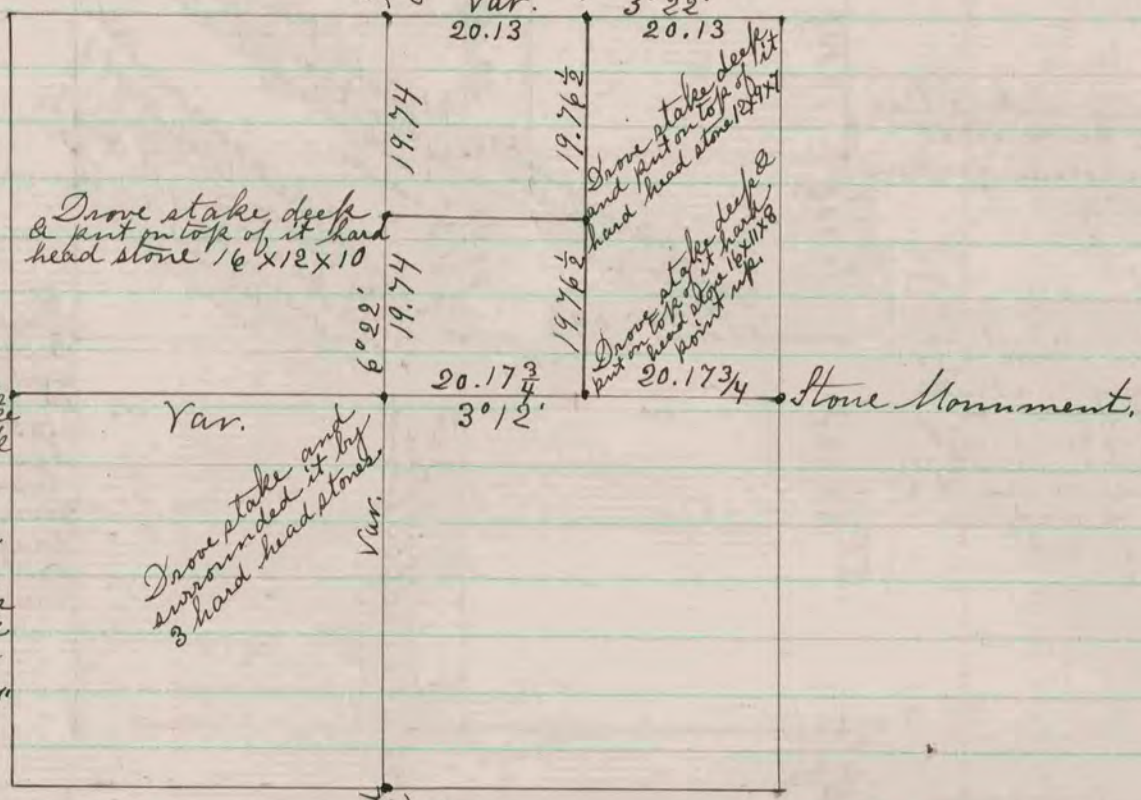 Var. 3° 22'
20.13 20.13
19.74
19.76 1/2
Drove stake deep
and put on top of it
hard head stone 12x9x7
Drove stake deep
& put on top of it hard
head stone 16 x 12 x 10
6° 22'
19.74
19.76 1/2
Drove stake deep &
put on top of it hard
head stone 16x11x8
point up.
20.17 3/4 20.17 3/4
Stone Monument.
Var. 3° 12'
Drove stake and
surrounded it by
3 hard head stones.
Var.